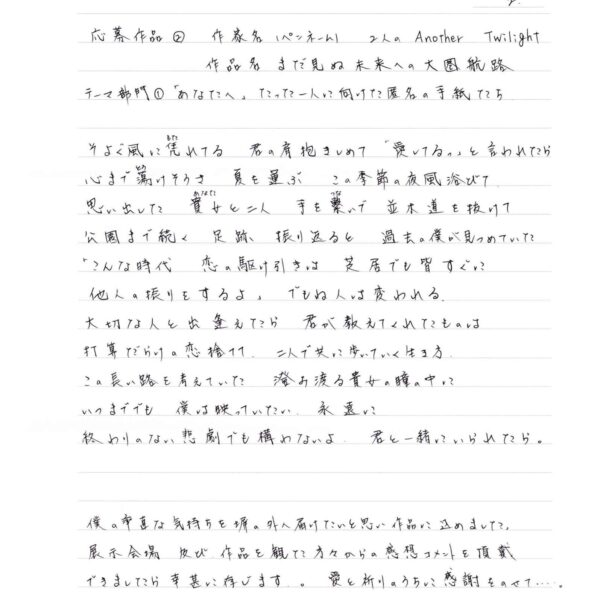 応募作品② 作家名(ペンネーム) 2人の Another Twilight
作品名 まだ見ぬ未来への大圏航路
テーマ部門①「あなたへ」たった一人に向けた匿名の手紙たち
そよぐ風に凭れてる 君の肩抱きしめて 「愛してるっ」と言われたら
心まで蕩けそうさ 夏を運ぶ この季節の夜風浴びて
思い出してた 貴女と二人 手を繋いで 並木道を抜けて
公園まで続く 足跡 振り返ると 過去の僕が見つめていた
「こんな時代 恋の駆け引きは 芝居でも皆すぐに
他人の振りをするよ」 でもね人は変われる
大切な人と出逢えてたら 君が教えてくれたものは
打算だらけの恋捨てて 二人で共に歩いていく生き方
この長い路を考えていた 澄み渡る貴女の瞳の中に
いつまででも 僕は映っていたい 永遠に
終わりのない悲劇でも構わないよ 君と一緒にいられたら。
僕の率直な気持ちを塀の外へ届けたいと思い作品に込めました。
展示会場 及び 作品を観てた方々からの感想コメントを頂戴
できましたら幸甚に存じます。 愛と祈りのうちに感謝をのせて……。